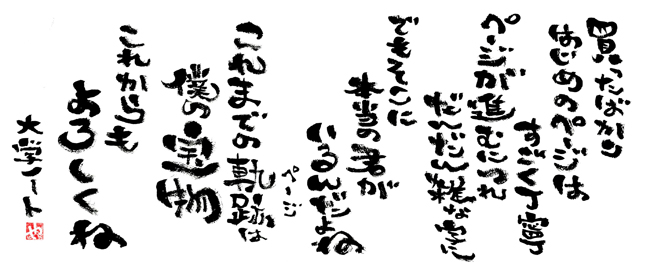 買ったばかり
はじめのページは
すごく丁寧
ページが進むにつれ
だんだん雑な字に
でもそこに
本当の君が
いるんだよね
ページ
これまでの軌跡は
僕の宝物
これからも
よろしくね
大学ノート